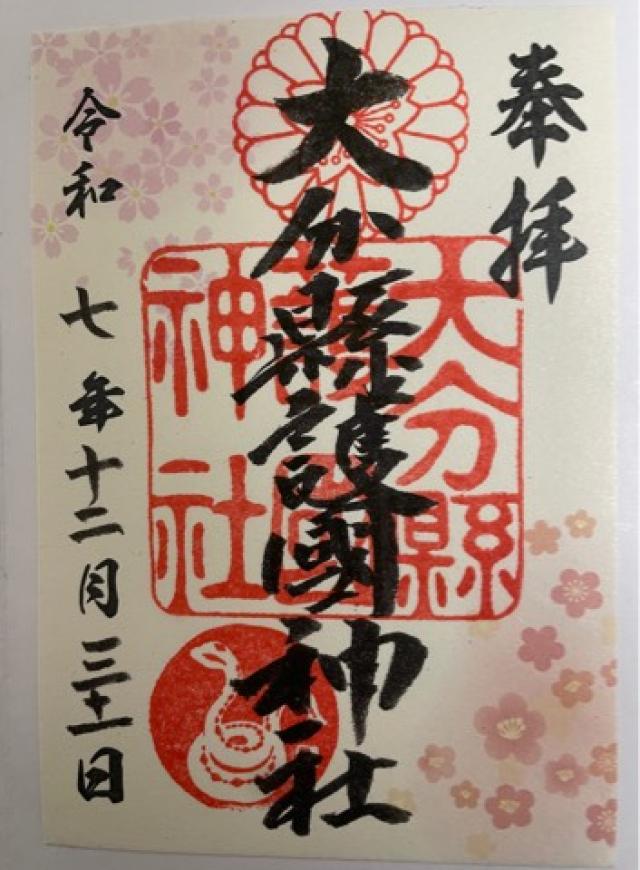 奉拝
大分縣護國神社
大分縣護國神社
令和七年十二月三十一日